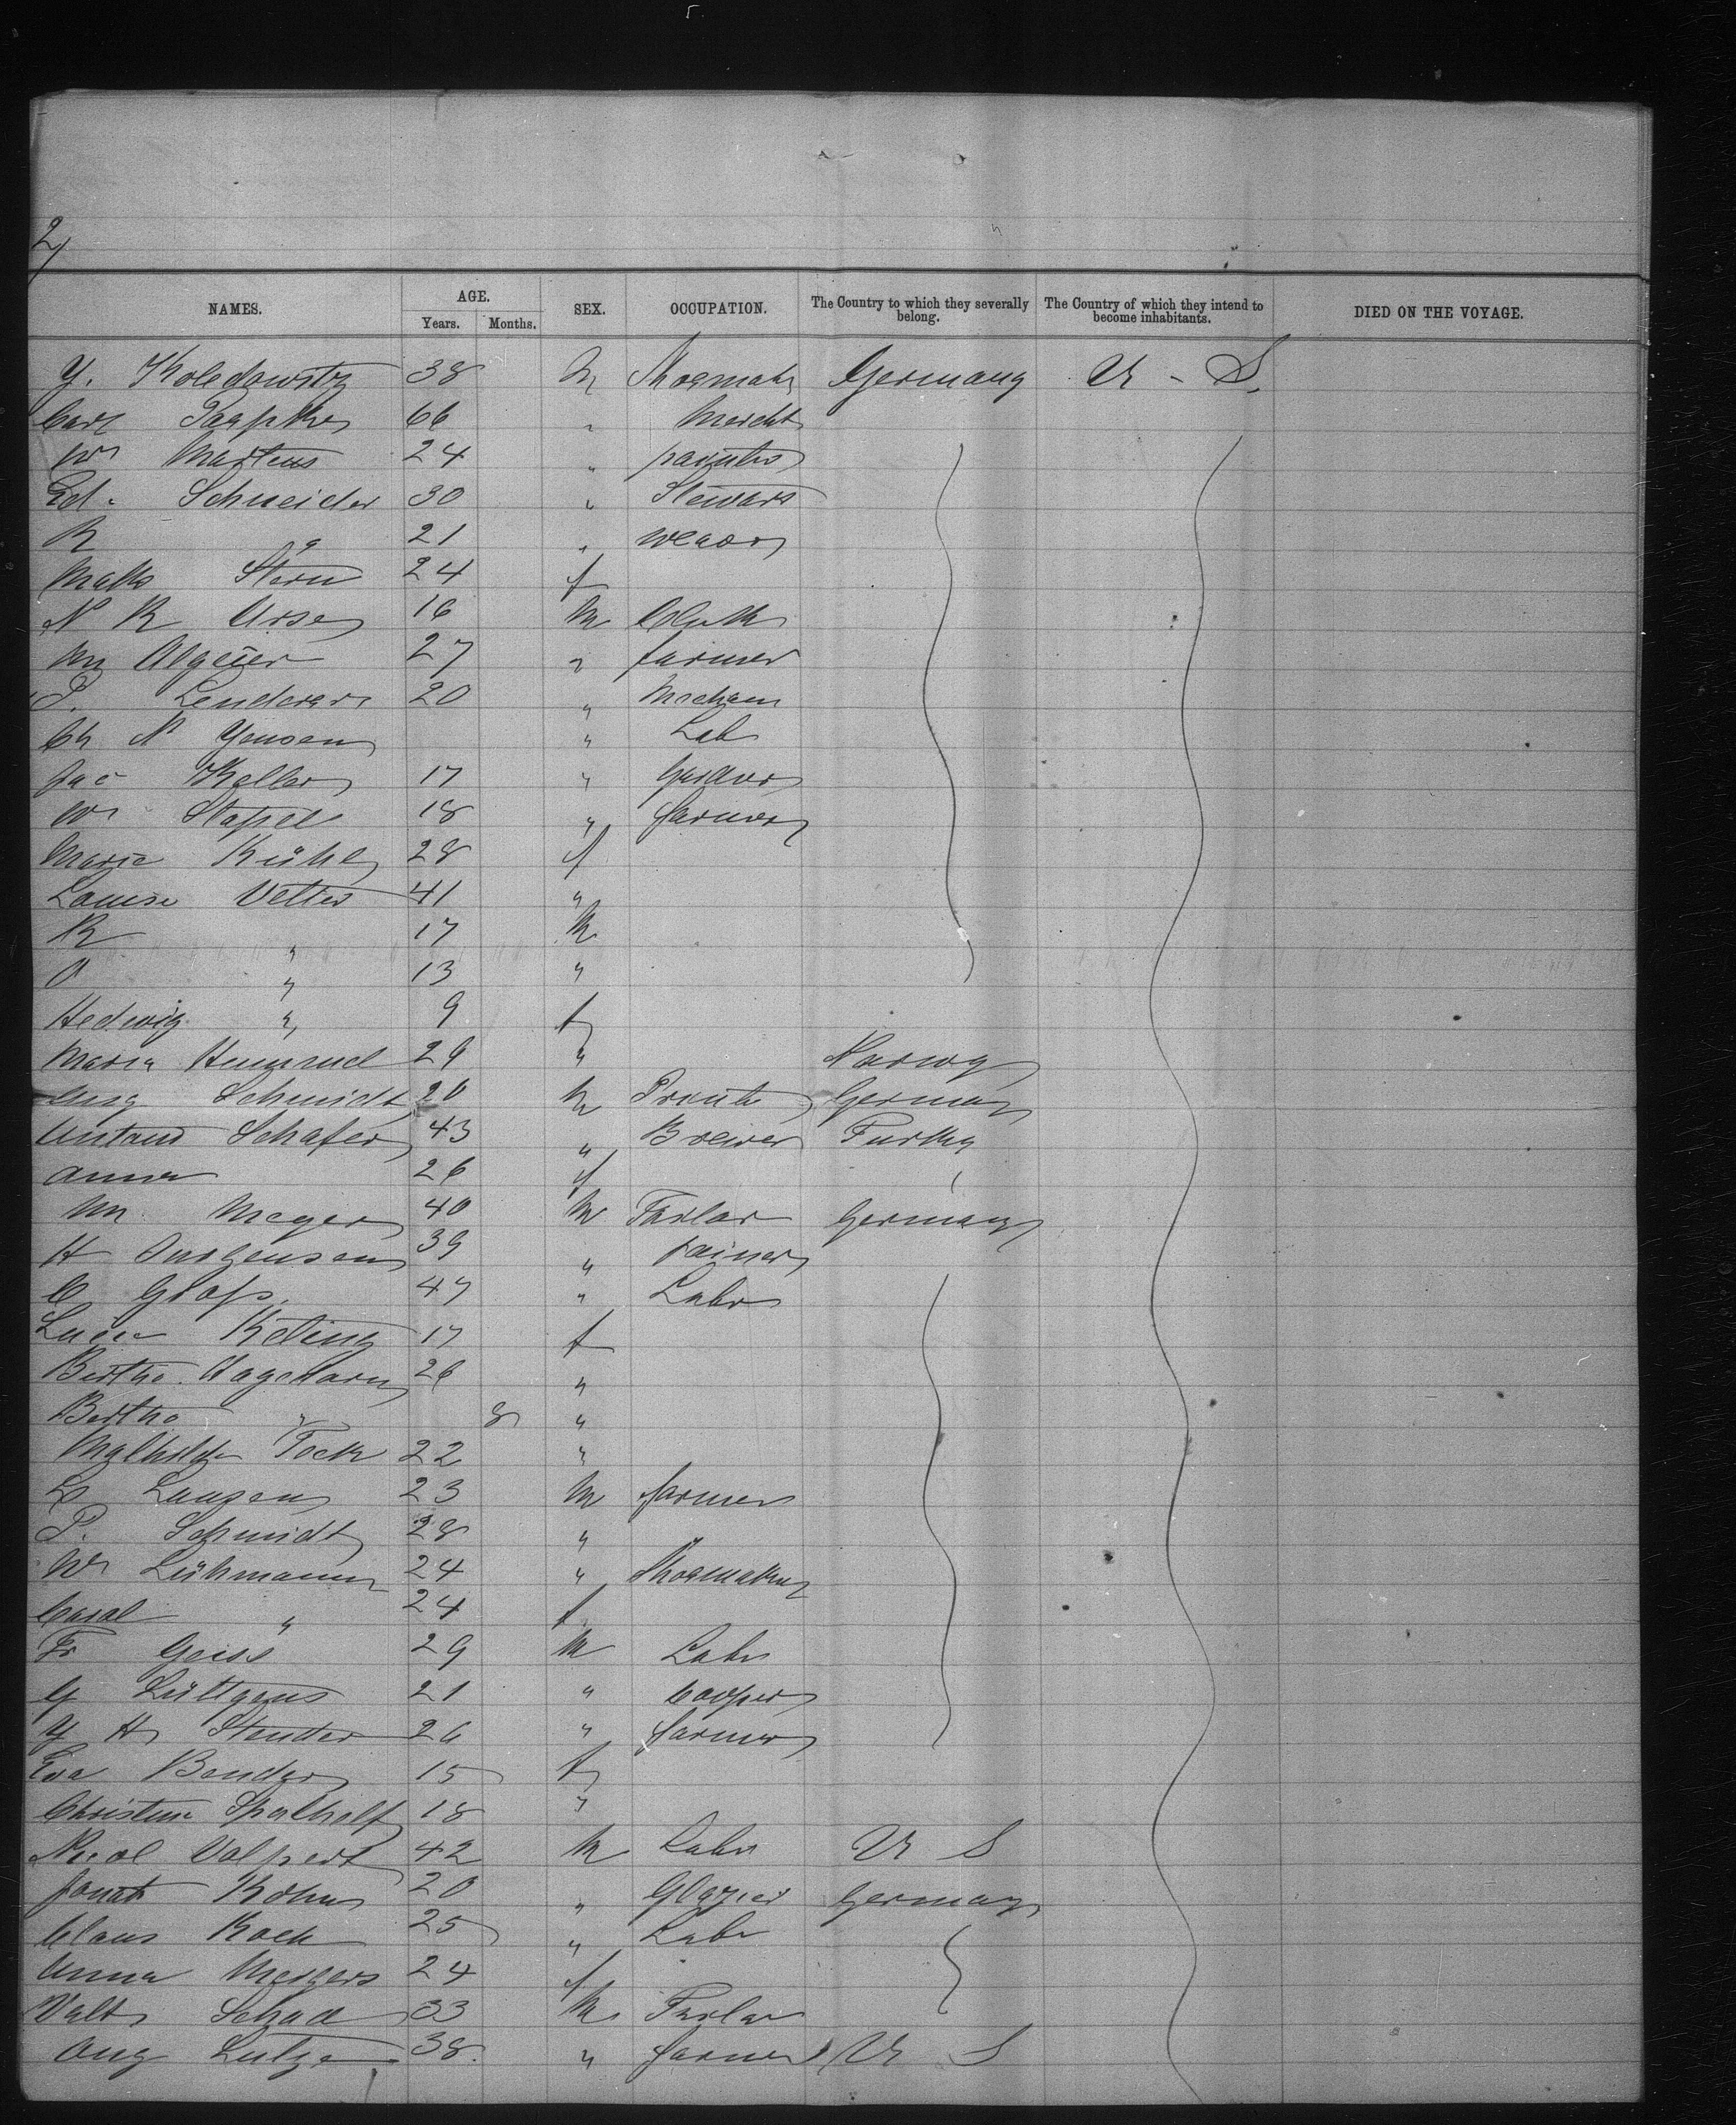 2/
NAMES. AGE. SEX. OCCUPATION. The Country to which they severally belong. The Country of which they intend to become inhabitants. DIED ON THE VOYAGE.
Years. Months.
Y. Koledowitz 38 M Shoemak Germany U - S.
Carl 66 " Mercht
Wm Martens 24 " painter
Ed. Schneider 30 " Steward
R " 21 " weaver
Stern 24 f
N R 16 M
Algeier 27 " farmer
P. 20 " Mechan
Ch N Yensen " Lab
Jac Keller 17 " Gardner
Wm Stapel 18 " farmer
Marie Kühl 28 f
Louise Vetter 41 "
R " 17 M
O " 13 "
Hedwig " 9 f
Maria 29 " Norwg
Aug Schmidt 20 M Printer Germany
Schafer 43 " Brewer Turkey
Anna 26 f "
M. Meyer 40 M Tailor Germany
H Jurgensen 39 "
C Grafs. 47 " Labr
Keting 17 f
Bertha Hagedorn 26 "
Bertha " 8 "
Mathilde Tock 22 "
L Lauzen 23 M farmer
P. Schmidt 28 "
Wm Lühmann 24 " Shoemaker
Carol " 24 f
Fr Geiss 29 M Labr
G Lüttgens 21 " Cooper
Y H Stender 26 " farmer
Eva Bender 15 f
Christine 18 "
Nicol Volpert 42 M Labr U S
20 " Glazier Germany
Claus Koch 25 " Labr
Anna Meyers 24 f
Valt Schad 33 M Tailor
Aug Lutze 38. " farmer U S